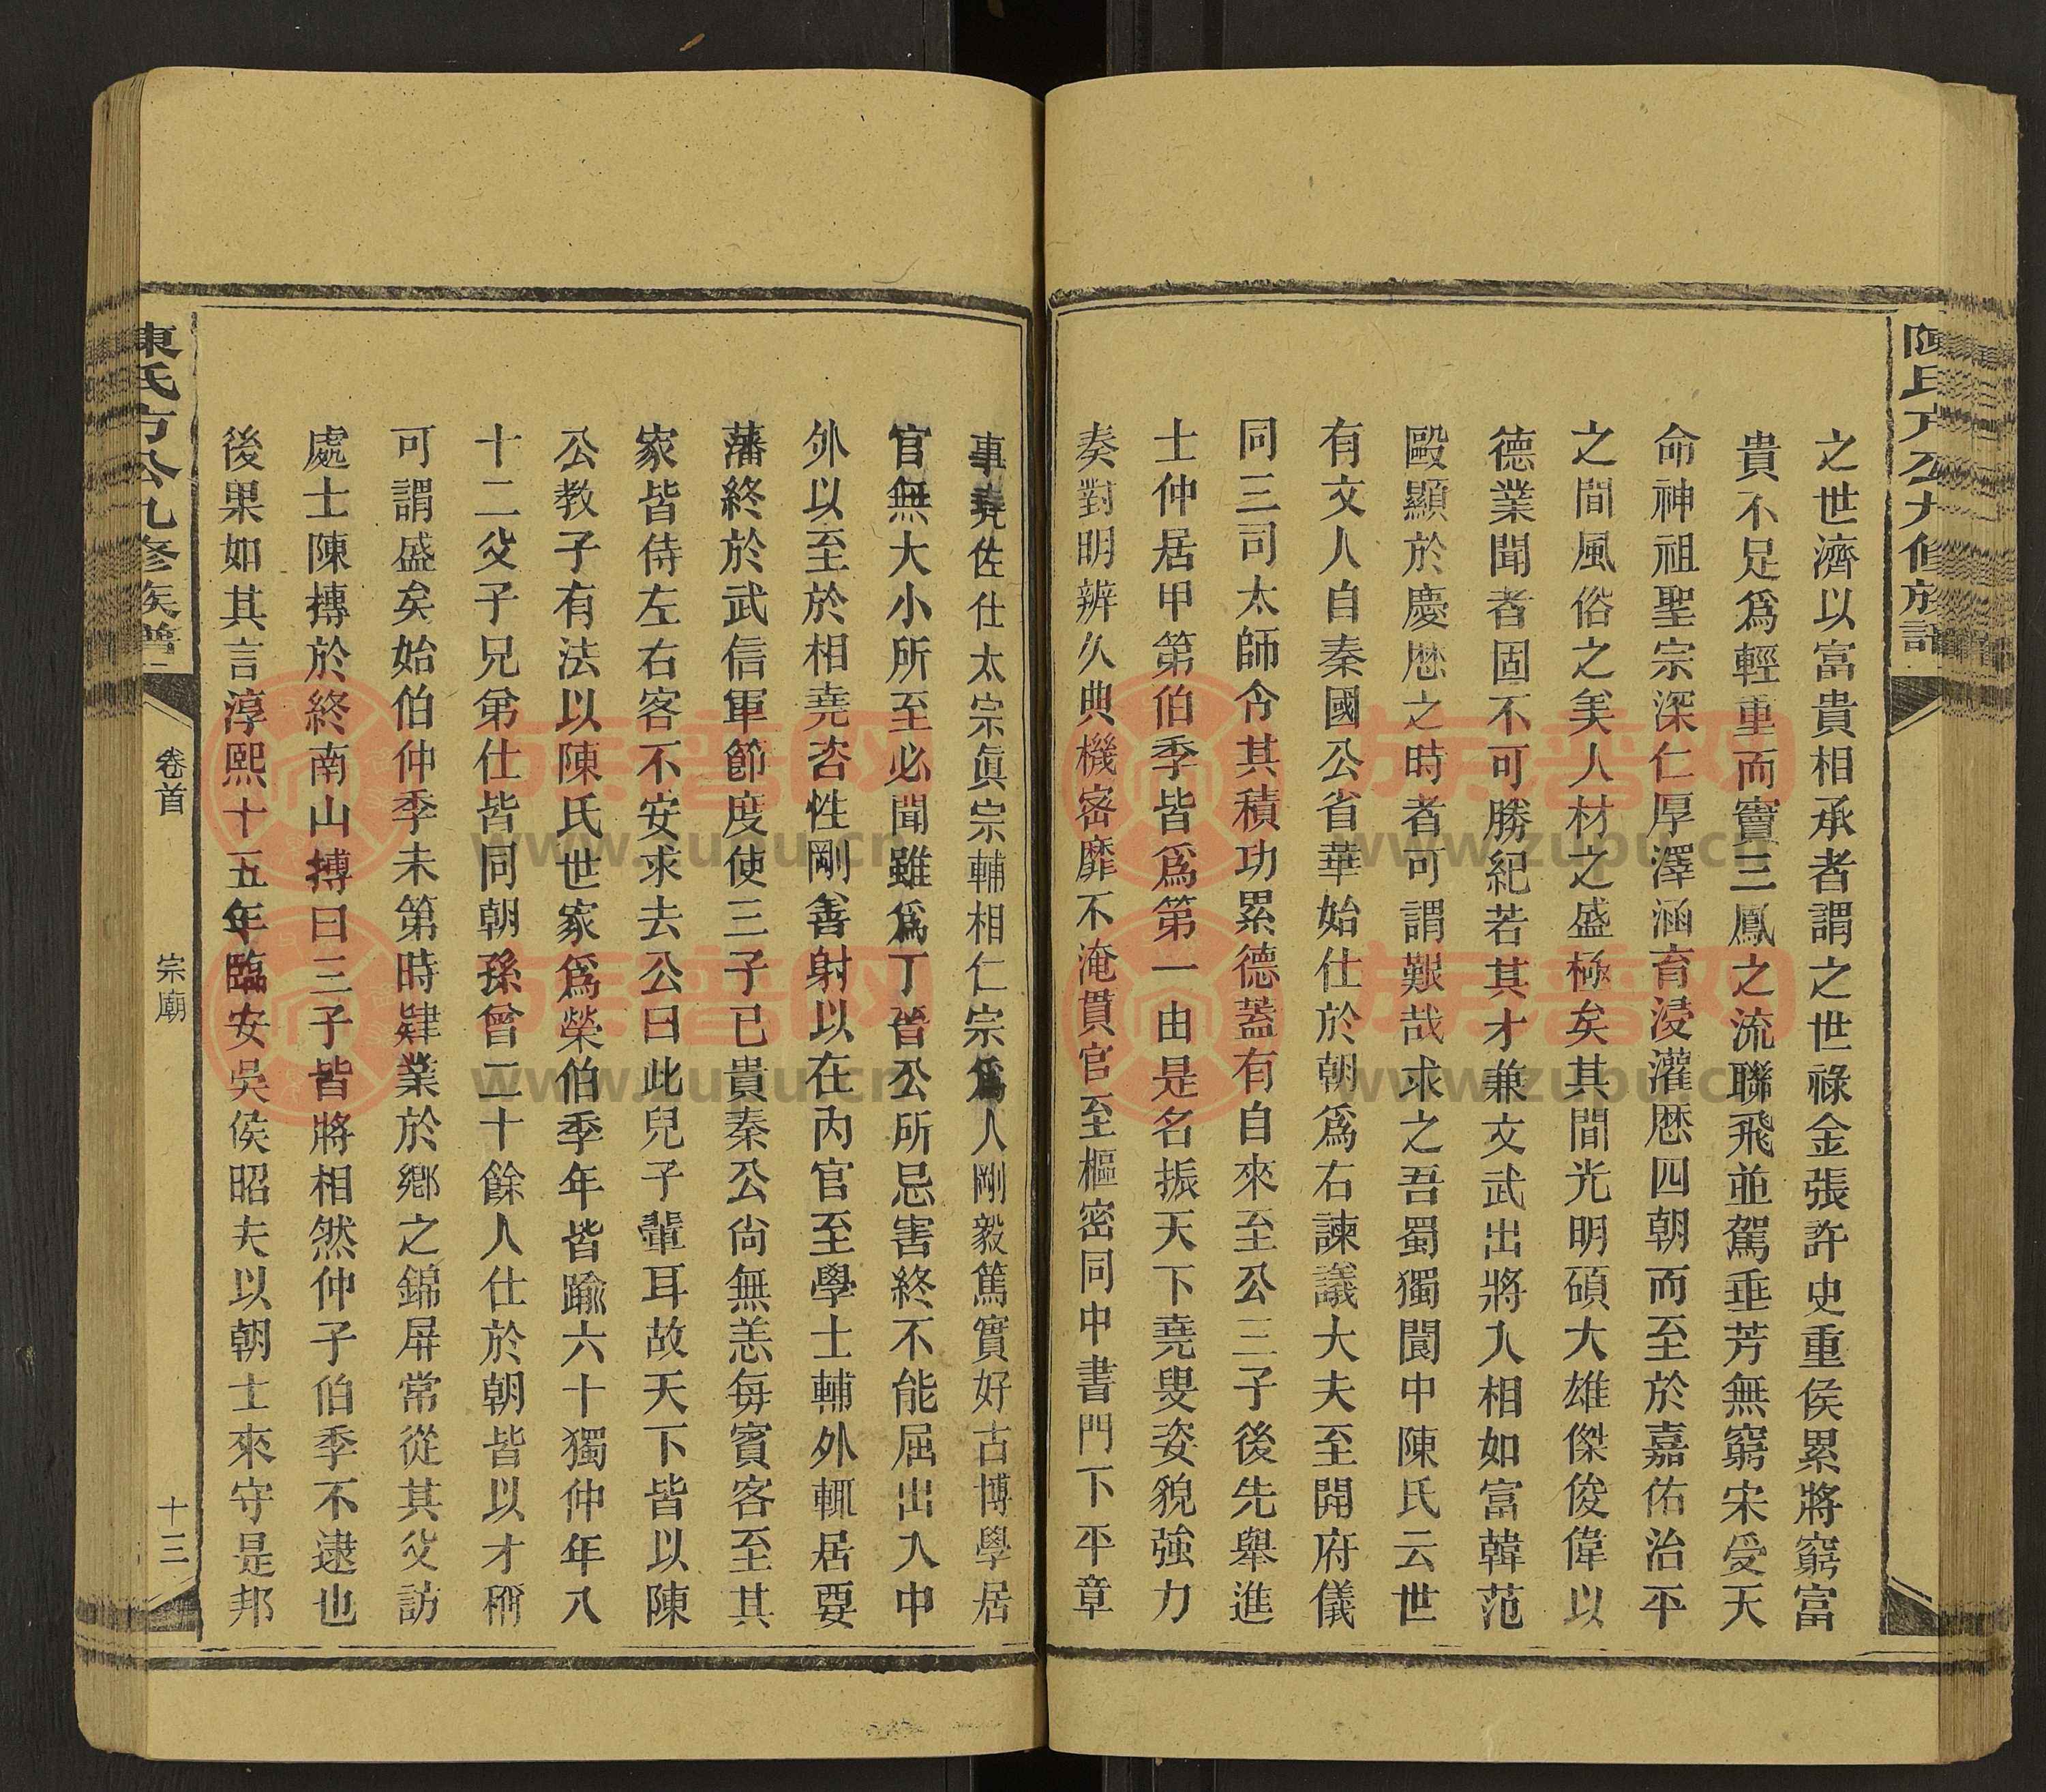 陳氏方公九修族譜
之世濟以富貴相承者謂之世祿金張許史重侯累將窮富
貴不足爲輕重而竇三鳳之流聯飛並駕垂芳無窮宋受天
命神祖聖宗深仁厚澤涵育浸灌歷四朝而至於嘉佑治平
之間風俗之美人材之盛極矣其間光明碩大雄傑俊偉以
德業聞者固不可勝紀若其才兼文武出將入相如富韓范
歐顯於慶歷之時者可謂艱哉求之吾蜀獨閬中陳氏云世
有文人自秦國公省華始仕於朝爲右諫議大夫至開府儀
同三司太師令其積功累德蓋有自來至公三子後先舉進
士仲居甲第伯季皆爲第一由是名振天下堯叟姿貌強力
奏對明辨久典機密靡不淹貫官至樞密同中書門下平章
事堯佐仕太宗眞宗輔相仁宗爲人剛毅篤實好古博學居
官無大小所至必聞雖爲丁晉公所忌害終不能屈出入中
外以至於相堯咨性剛善射以在內官至學士輔外輒居要
藩終於武信軍節度使三子已貴秦公尙無恙每賓客至其
家皆侍左右客不安求去公曰此兒子輩耳故天下皆以陳
公教子有法以陳氏世家爲榮伯季年皆踰六十獨仲年八
十二父子兄弟仕皆同朝孫曾二十餘人仕於朝皆以才稱
可謂盛矣始伯仲季未第時肄業於鄉之錦屏常從其父訪
處士陳摶於終南山搏曰三子皆將相然仲子伯季不逮也
後果如其言淳熙十五年臨安吳侯昭夫以朝士來守是邦
陳氏方公九修族譜
卷首
宗廟
十三
族譜网
www.zupu.cn
族譜网
www.zupu.cn
族譜网
www.zupu.cn
族譜网
www.zupu.cn